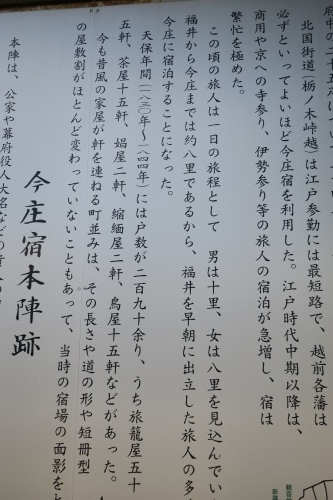 北国街道(栃ノ木峠越)は江戸参勤には最短路で、越前各藩は
必ずといってよいほど今庄宿を利用した。江戸時代中期以降は、
商用や京への寺参り、伊勢参り等の旅人の宿泊が急増し、宿は
繁忙を極めた。
この頃の旅人は一日の旅程として 男は十里、女は八里を見込んでい
福井から今庄までは約八里であるから、福井を早朝に出立した旅人の多
今庄に宿泊することになった。
天保年間(一八三〇年〜一八四四年)には戸数が二百九十余り、うち旅籠屋五十
五軒、茶屋十五軒、娼屋二軒、縮緬屋二軒、鳥屋十五軒などがあった。
今も昔風の家屋が軒を連ねる町並みは、その長さや道の形や短冊型
の屋敷割がほとんど変わっていないこともあって、当時の宿場の面影を
今庄宿本陣跡
本陣は、公家や幕府役人大名などの